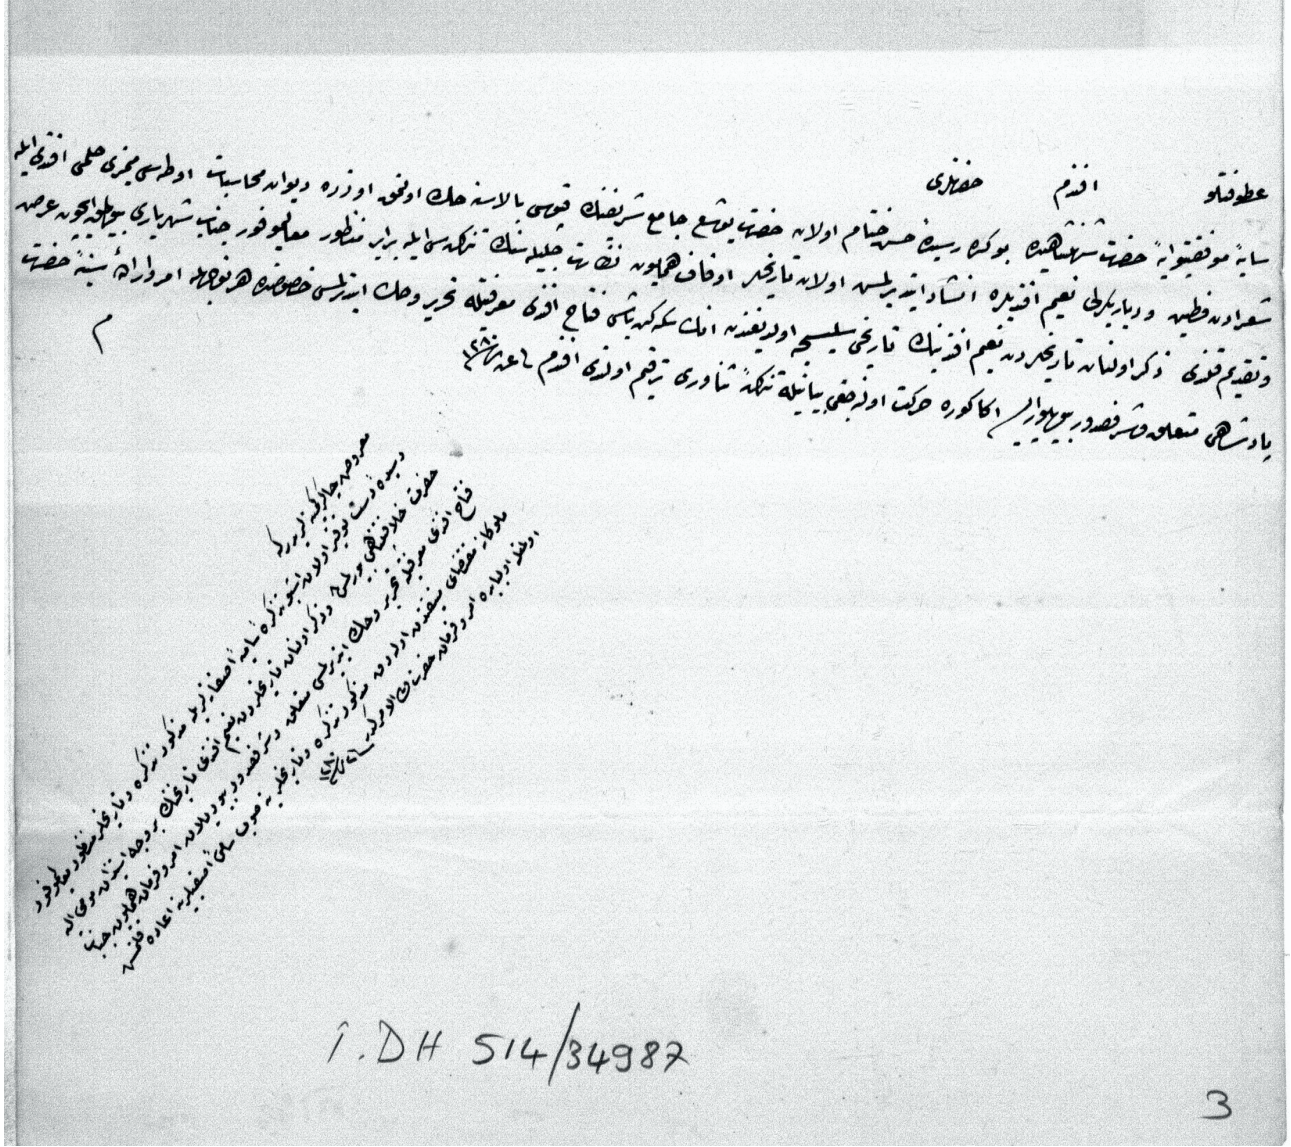 عطوفتلو افندم حضرتلری
سایۀ موفقیتوایۀ حضرت شهنشاهیده بو کره رسیدۀ حسن ختام اولان حضرت یوشع جامع شریفنك قپوسی بالاسنه حك اولنمق اوزره دیوان محاسبات اوطه‌سی ممیزی حلمی افندی ایله
شعرادن فطین و دیاربکرلی نعیم افندیلره انشاد ایتدیرلمش اولان تاریخلر اوقاف همایون نظارت جلیله‌سنك تذکره‌سی ایله برابر منظور معالیموفور جناب شهریاری بیورلمق ایچون عرض
و تقدیم قلندی ذکر اولنان تاریخلردن نعیم افندینك تاریخی سلیسجه اولدیغندن انك سکه‌کن باشی فتاح افندی معرفتیله تحریر و حك ایتدرلمسی خصوصنده هر نوجهله امر و ارادۀ سنیۀ حضرت
پادشاهی متعلق و شرفصدور بیوریلور ایسه اکا کوره حرکت اولنه‌جغی بیانیله تذکرۀ ثناوری ترقیم اولندی افندم
م
معروض چاکر کمینه‌لریدر که
رسیدۀ دست توقیر اولان اشبو تذکرۀ سامیۀ آصفانه‌لریله مذکور تذکره و تاریخلر منظور معالیموفور
حضرت خلافتپناهی بیورلمش و ذکر اولنان تاریخلردن نعیم افندی تاریخنك بر وجه استیذان مومی الیه
فتاح افندی معرفتیله تحریر و حك ایتدیرلمسی متعلق و شرفصدور بیوریلان امر و فرمان همایون جناب
ملوکانه مقتضای منیفندن اولەرق مذکور تذکره و تاریخلر ینه صوب سامئ آصفیلرینه اعاده قلنمش
اولمغله اولبابده امر و فرمان حضرت ولی الامرکدر
İ.DH 514/34987
3